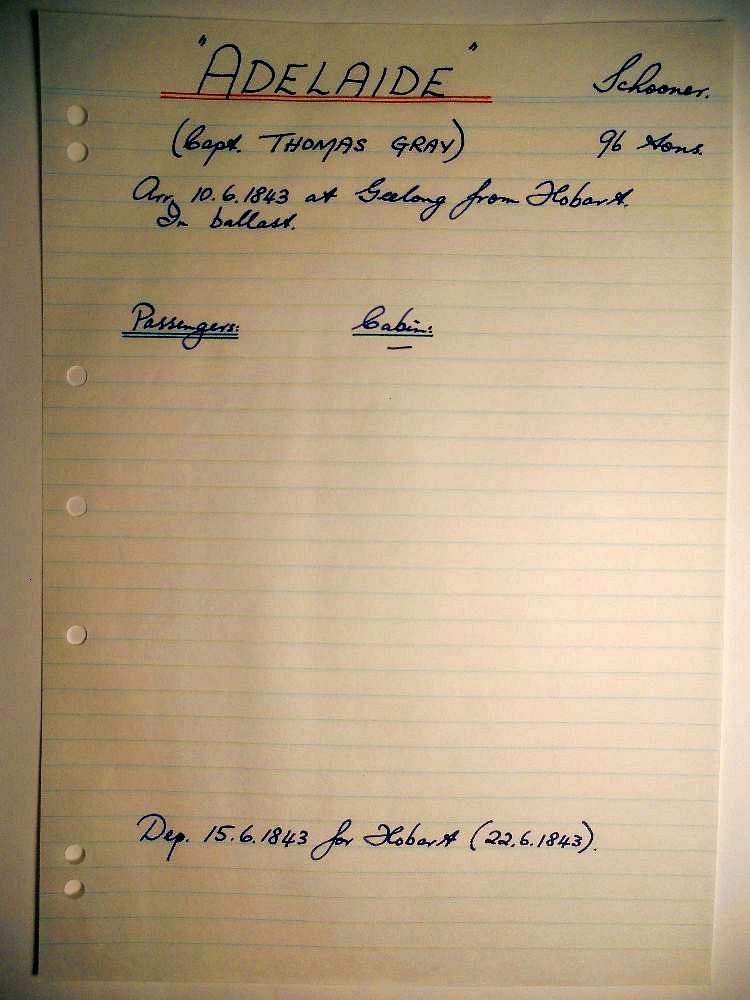 "ADELAIDE" Schooner.
(Capt. THOMAS GRAY) 96 tons.
Arr. 10.6.1843 at Geelong from Hobart.
In ballast.
Passengers: Cabin:
—
Dep. 15.6.1843 for Hobart (22.6.1843).